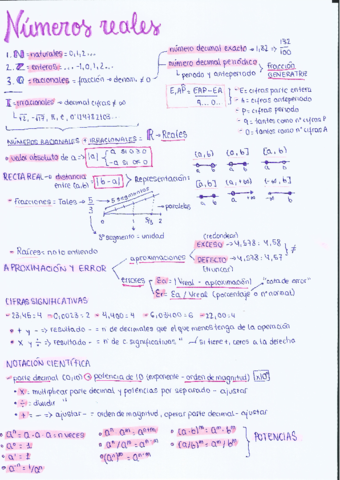 Números reales
1. N = naturales = 0, 1, 2...
2. Z = enteros = ... -1, 0, 1, 2...
3. Q = racionales = fracción → denom. ≠ 0
número decimal exacto → 1,32 → 132/100
número decimal periódico
↳ periodo y anteperiodo → fracción GENERATRIZ
I = irracionales → decimal cifras ≠ ∞
E, AP = EAP - EA / 9...0...
E = cifras parte entera
A = cifras anteperiodo
P = cifras periodo
9 = tantos como nº cifras P
0 = tantos como nº cifras A
NÚMEROS RACIONALES + IRRACIONALES = R → Reales
valor absoluto de a → |a| = a si a ≥ 0
-a si a < 0
RECTA REAL → distancia entre (a,b) = |b-a|
Representación:
(a, b) (a, b] [a, b)
[a, b] [a, +∞) (-∞, b]
- Fracciones: Tales → 5/3
5 segmentos
paralelas
0 1 5/3 2
3er segmento = unidad
- Raíces: no lo entiendo
APROXIMACIÓN Y ERROR
aproximaciones
(redondear)
EXCESO → 4,578 = 4,58
DEFECTO → 4,578 = 4,57
(truncar)
≠
errores
Ea = |Vreal - aproximación| → "cota de error"
Er = Ea / Vreal (porcentaje o nº normal)
CIFRAS SIGNIFICATIVAS
* + y - → resultado = n de decimales que el que menos tenga de la operación
* x y ÷ → resultado = n de c. significativas
↳ si tiene +, ceros a la derecha
NOTACIÓN CIENTÍFICA
parte decimal (0,10) · potencia de 10 (exponente = orden de magnitud)
• x = multiplicar parte decimal y potencias por separado - ajustar
• ÷ = dividir "
• + = - → ajustar = orden de magnitud, operar parte decimal - ajustar
• aⁿ = a · a · a = n veces
• aⁿ · aᵐ = aⁿ⁺ᵐ
• a⁰ = 1
• aⁿ / aᵐ = aⁿ⁻ᵐ
• a⁻ⁿ = 1/aⁿ
POTENCIAS